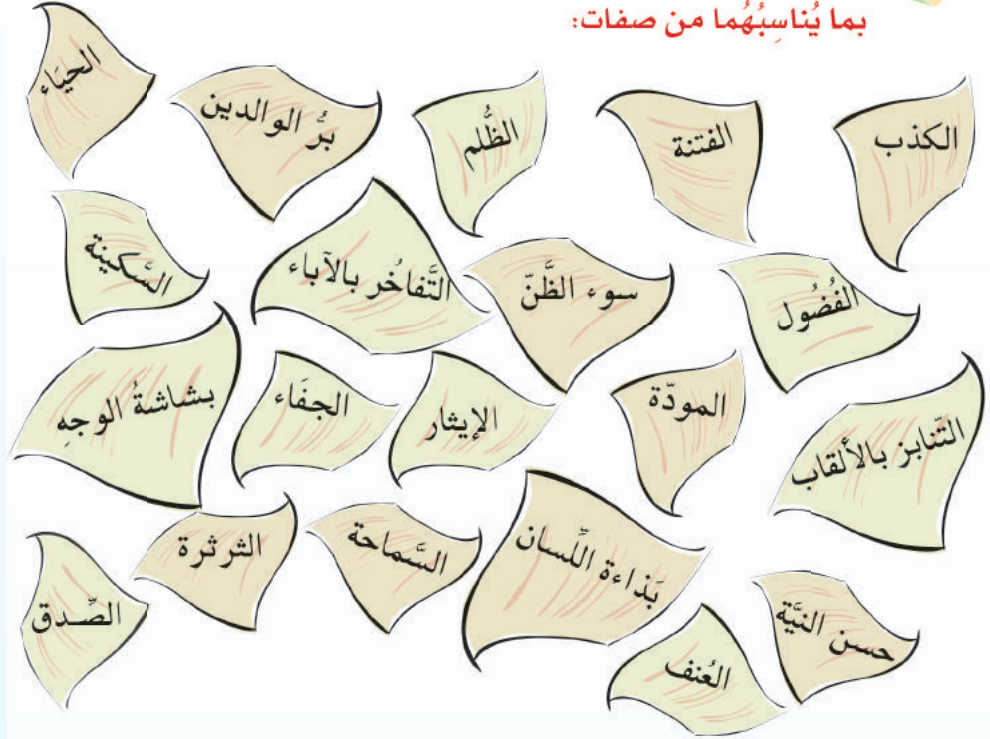 بما يُناسِبُهُما من صفات:
الكذب
الفتنة
الظُّلم
برُّ الوالدين
الحيَاء
الفُضُول
سوء الظَّنّ
التَّفاخُر بالآباء
السَّكينة
التَّنابز بالألقاب
المودّة
الإيثار
الجفَاء
بشاشةُ الوجهِ
حسن النيَّة
بَذاءة اللِّسان
السَّماحة
الثرثرة
الصِّدق
العُنف